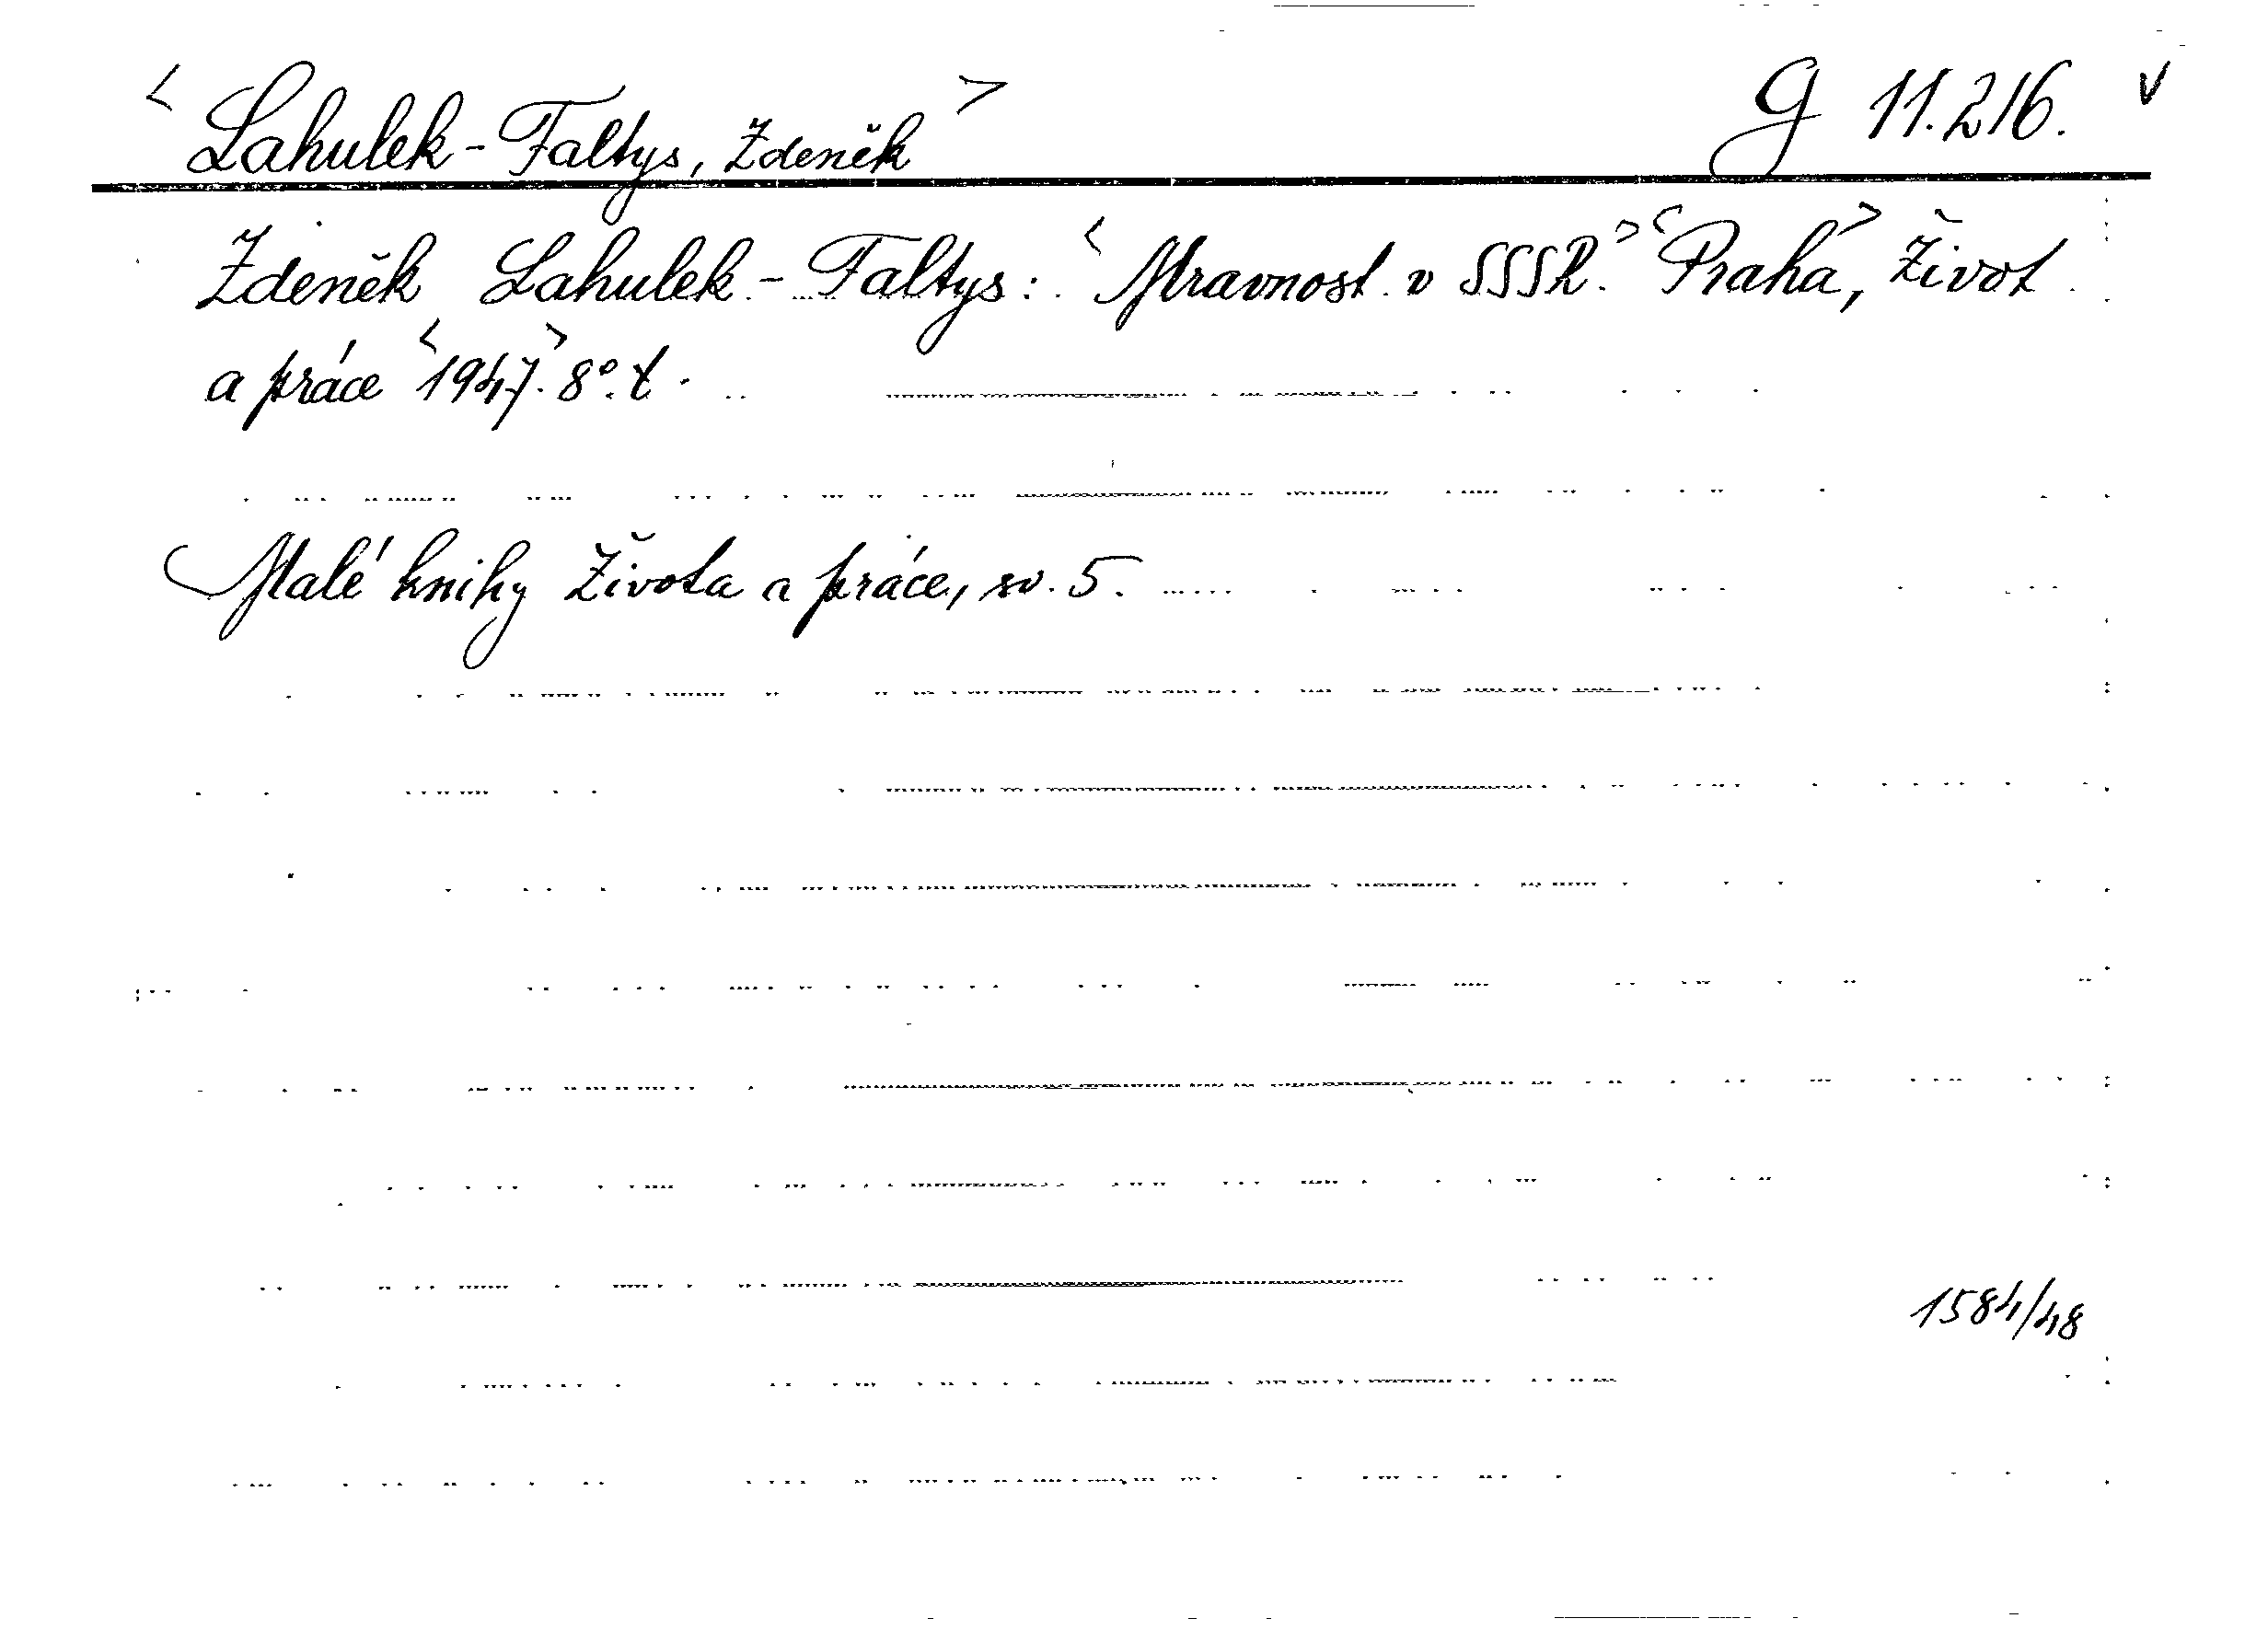 <Lahulek-Faltys, Zdeněk> G 11.216. v
Zdeněk Lahulek-Faltys: <Mravnost v SSSR.> <Praha>, Život
a práce <1947>. 8°. t.
Malé knihy Života a práce, sv. 5.
1584/48